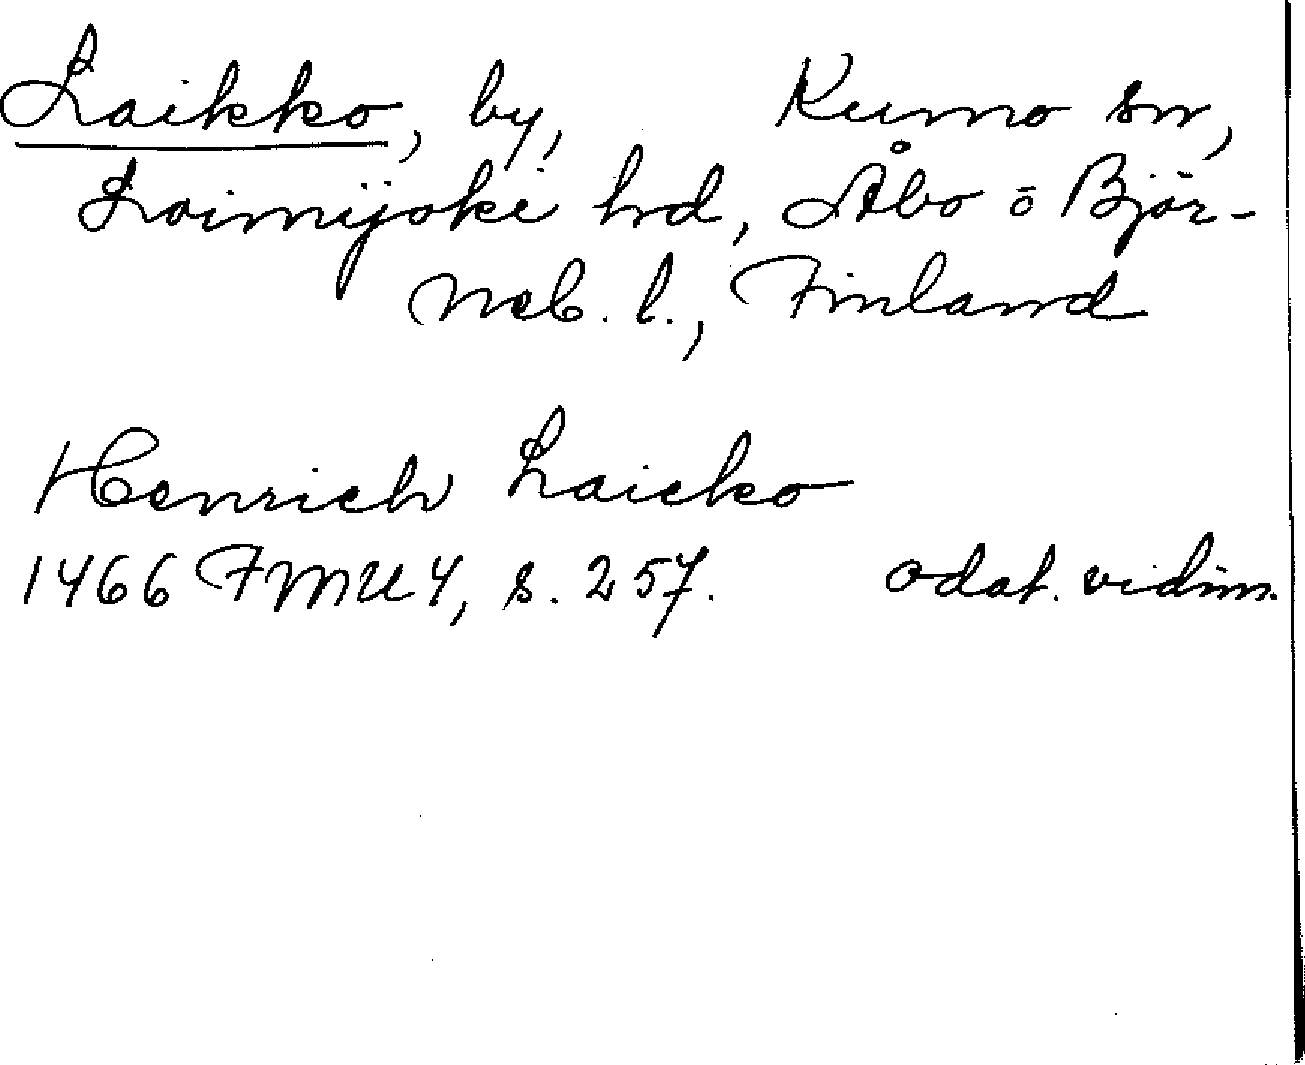 Laikko, by, Kumo sn,
Loimijoki hd, Åbo o Björ-
neb. l., Finland
Henrich Laicko
1466 FMU 4, s. 257. odat. vidim.